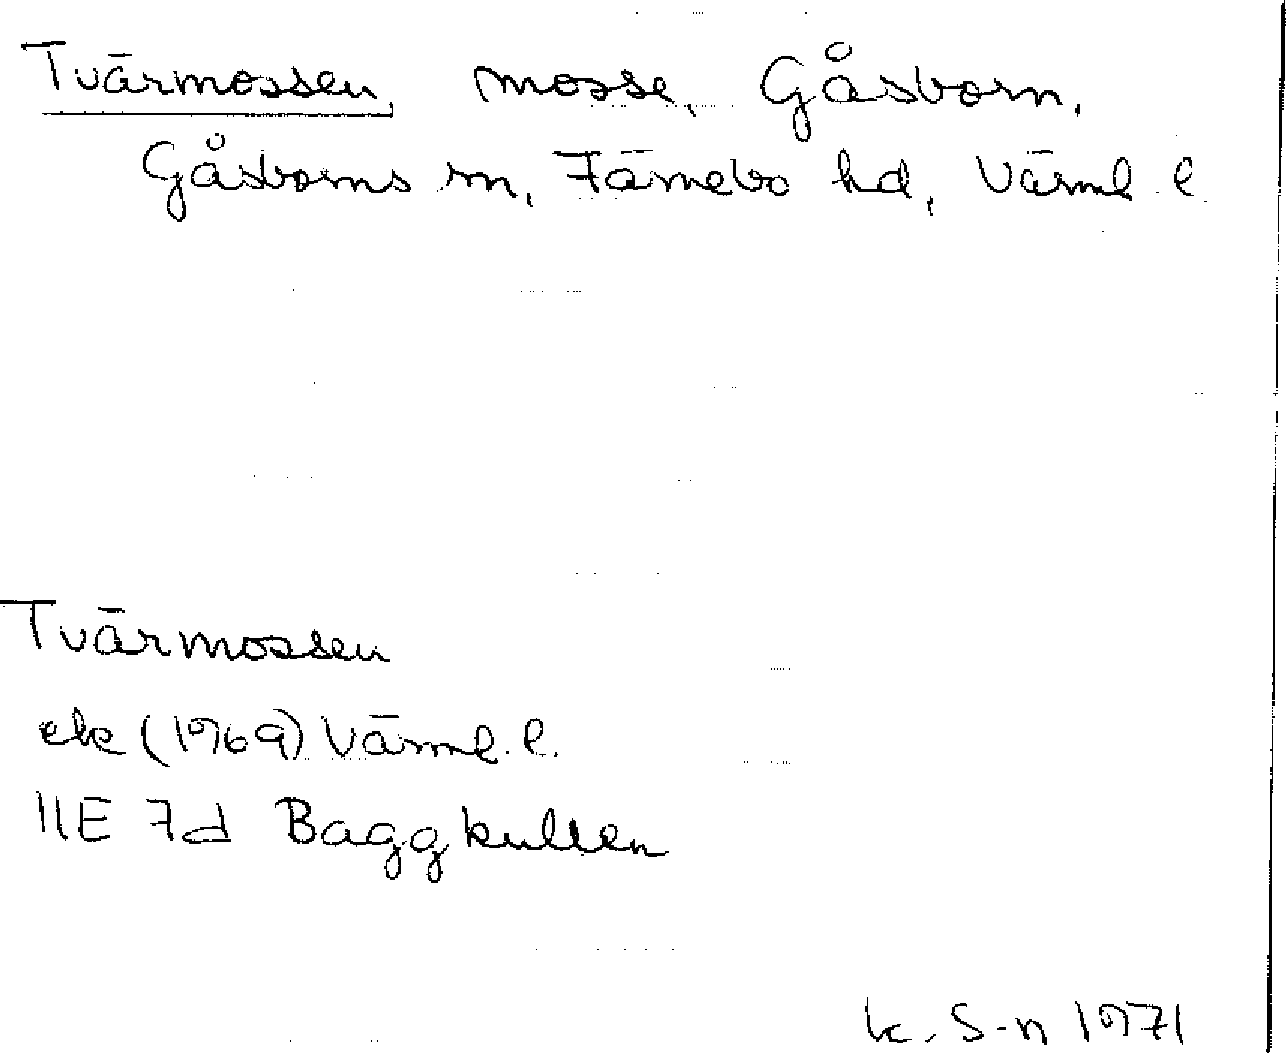 Tvärmossen, mosse, Gåsborn,
Gåsborns sn, Färnebo hd, Värml. l.
Tvärmossen
ek (1969) Värml. l.
11E 7d Baggkullen
k. S-n 1971